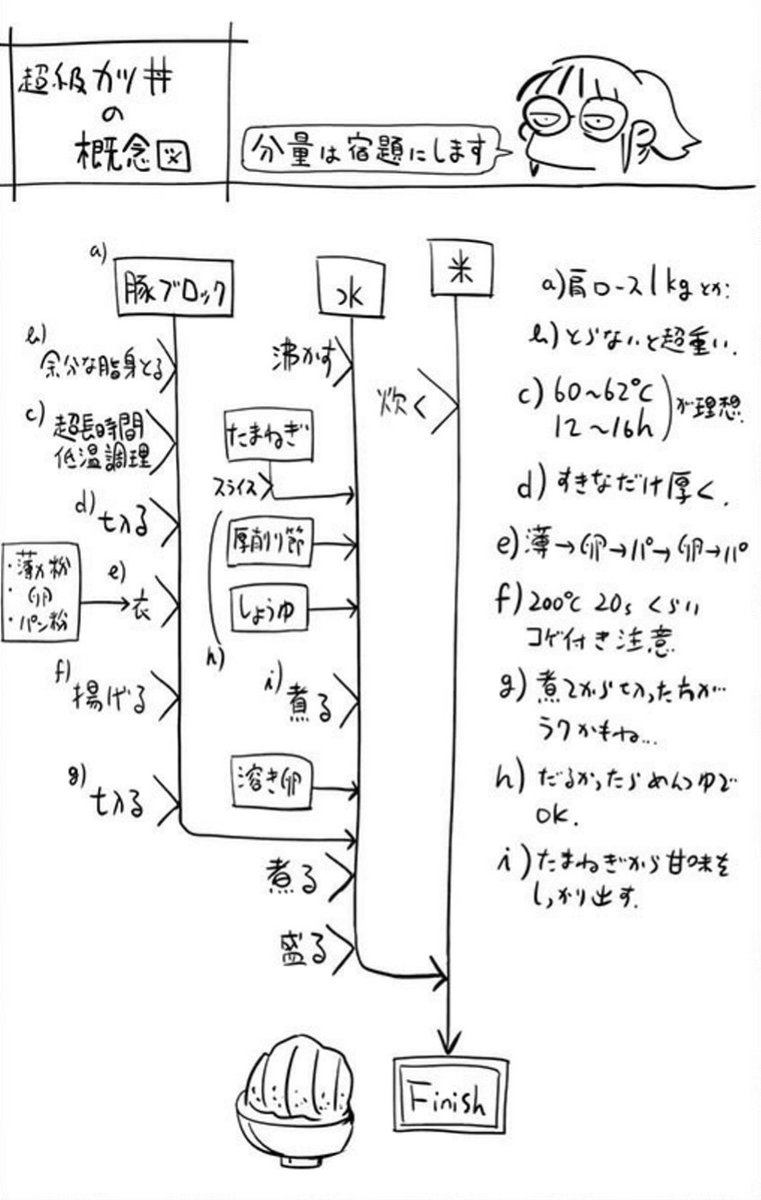 超級カツ丼
の
概念図
分量は宿題にします
a)
豚ブロック
水
米
b)
余分な脂身とる
沸かす
炊く
c) 超長時間
低温調理
たまねぎ
スライス
d) 切る
厚削り節
・薄力粉
・卵
・パン粉
e) 衣
しょうゆ
h)
f) 揚げる
i) 煮る
g) 切る
溶き卵
煮る
盛る
Finish
a) 肩ロース1kgとか.
b) とらないと超重い.
c) 60〜62℃
12〜16h
が理想
d) すきなだけ厚く.
e) 薄→卵→パ→卵→パ
f) 200℃ 20sくらい
コゲ付き注意
g) 煮てから切った方が…
ラクかもね…
h) だるかったらめんつゆで
OK.
i) たまねぎから甘味を
しっかり出す.